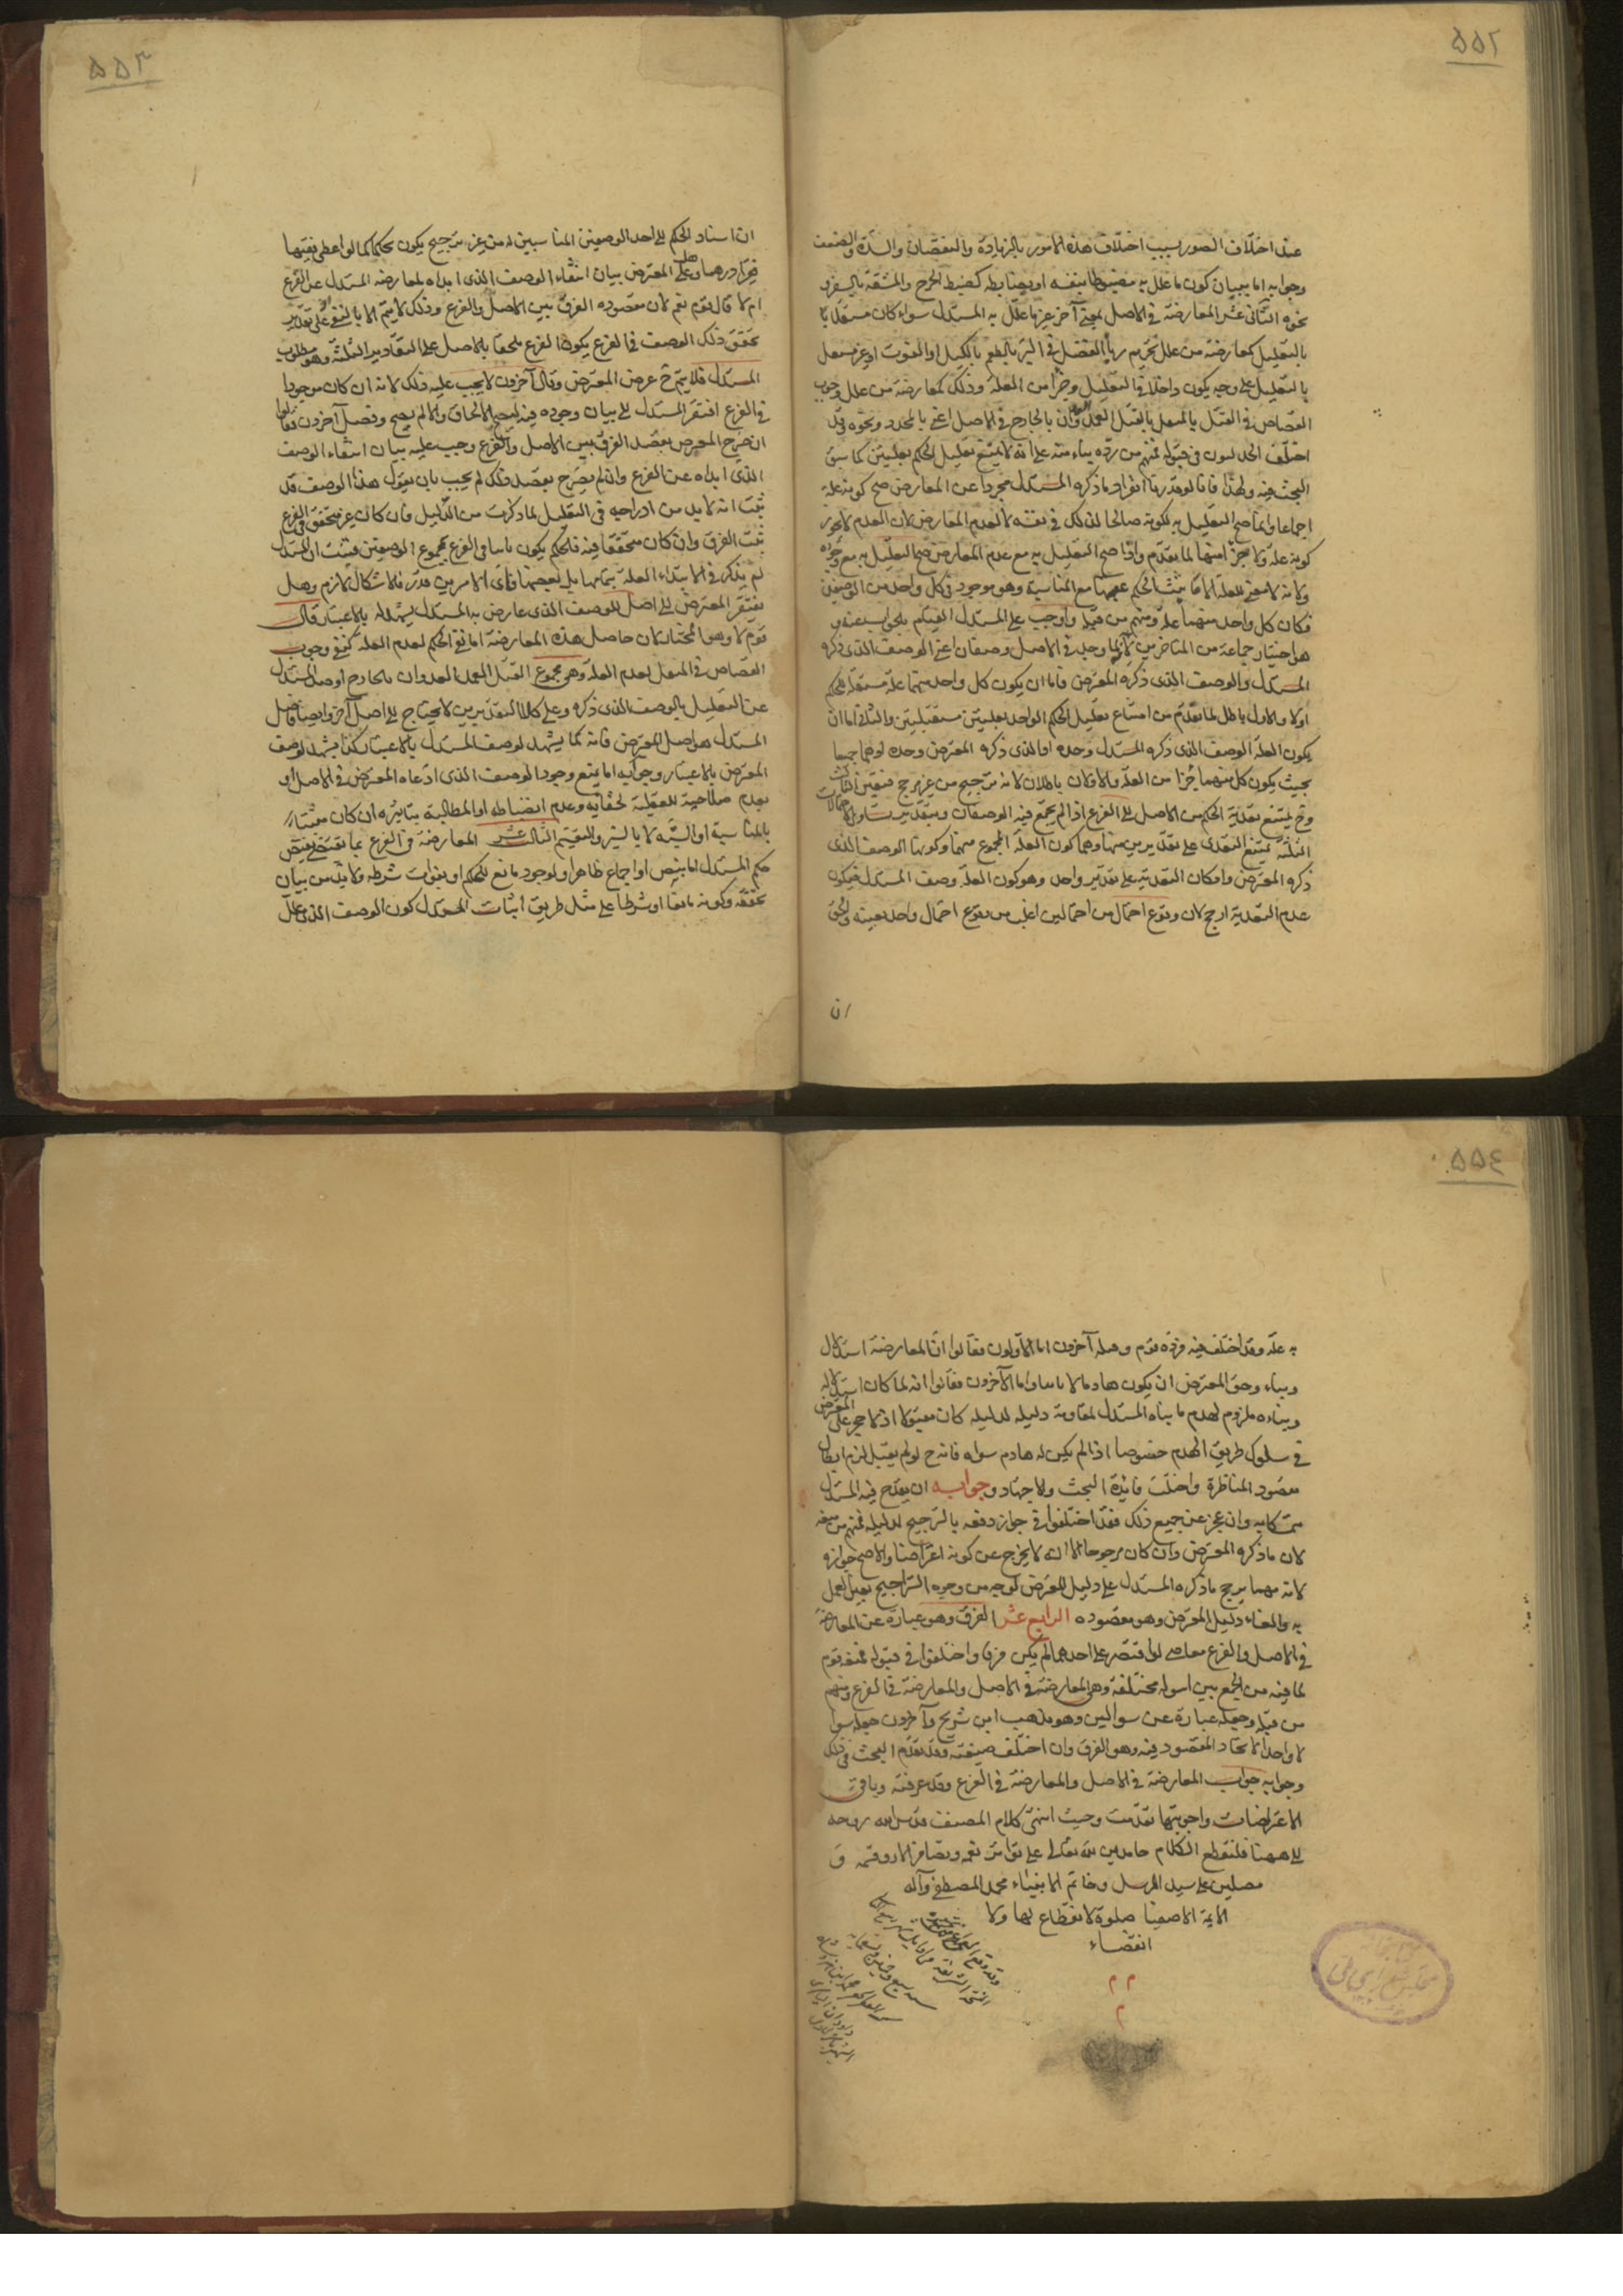 ٥٥٢
عند اختلاف الصور بسبب اختلاف هذه الامور بالزيادة والنقصان والشدة والضعف
وجوابه اما ببيان كون ما علل به مضبوطا بنفسه او بضابطه كضبط الحرج والمشقة بالسفر و
نحوه الثانى عشر المعارضة فى الاصل بمعنى آخر غير ما علل به المستدل سواء كان مستقلا با
بالتعليل كمعارضة من علل تحريم ربا الفضل فى البر بالطعم بالكيل او القوت او غير مستقل
بالتعليل على وجه يكون داخلا فى التعليل وجزأ من العلة وذلك كمعارضة من علل وجوب
القصاص فى القتل بالمثقل بالقتل العمد العدوان بالجارح فى الاصل اعنى بالمحدد ونحوه وقد
اختلف الجدليون فى قبوله فمنهم من رده بناء منه على انه لا يمتنع تعليل الحكم بعلتين كما سبق
البحث فيه ولهذا فانا لو قدرنا انفراد ما ذكره المستدل مجردا عن المعارض صح كونه علة
اجماعا وانما صح التعليل به لكونه صالحا لذلك فى نفسه لا لعدم المعارض لان العدم لا يجوز
كونه علة ولا جزأ منها لما تقدم واذا صح التعليل به مع عدم المعارض صح التعليل به مع وجوده
ولانه لا معنى للعلة الا ما يثبت الحكم عقيبها مع المناسبة وهو موجود فى كل واحد من الوصفين
فكان كل واحد منهما علة ومنهم من قبله واوجب على المستدل القيام بالجواب عنه و
هو اختيار جماعة من المتاخرين لانه لما وجد فى الاصل وصفان اعنى الوصف الذى ذكره
المستدل والوصف الذى ذكره المعترض فاما ان يكون كل واحد منهما علة مستقلة للحكم
اولا والاول باطل لما تقدم من امتناع تعليل الحكم الواحد بعلتين مستقلتين والثانى اما ان
يكون العلة الوصف الذى ذكره المستدل وحده او الذى ذكره المعترض وحده او هما جميعا
بحيث يكون كل منهما جزأ من العلة والاولان باطلان لانه ترجيح من غير مرجح فتعين الثالث
وح يمتنع تعدية الحكم من الاصل الى الفرع اذا لم يجتمع فيه الوصفان وبتقدير تساوى الاحتمالات
الثلثة يمتنع التعدى على تقديرين منها وهما كون العلة المجموع منهما وكونها الوصف الذى
ذكره المعترض وامكان التعدية على تقدير واحد وهو كون العلة وصف المستدل فيكون
عدم التعدية ارجح لان وقوع احتمال من احتمالين اغلب من وقوع احتمال واحد بعينه والحق
ان
٥٥٣
ان اسناد الحكم الى احد الوصفين المناسبين له من غير ترجيح يكون تحكما كما لو اعطى فقيها
المعترض بيان انتفاء الوصف الذى ابداه لمعارضة المستدل عن الفرع
ام لا قال قوم نعم لان مقصوده الفرق بين الاصل والفرع وذلك لا يتم الا بالنفى على تقدير
تحقق ذلك الوصف فى الفرع يكون الفرع ملحقا بالاصل على التقادير الثلثة وهو مطلوب
المستدل فلا يتم ح غرض المعترض وقال آخرون لا يجب عليه ذلك لانه ان كان موجودا
فى الفرع افتقر المستدل الى بيان وجوده فيه ليصح الالحاق والا لم يصح وفصل آخرون فقالوا
ان صرح المعترض بقصد الفرق بين الاصل والفرع وجب عليه بيان انتفاء الوصف
الذى ابداه عن الفرع وان لم يصرح بقصد ذلك لم يجب بان يقول هذا الوصف قد
ثبت انه لا بد من ادراجه فى التعليل لما ذكرت من الدليل فان كان غير متحقق فى الفرع
ثبت الفرق وان كان متحققا فيه فالحكم يكون ثابتا فى الفرع بمجموع الوصفين فثبت ان المستدل
لم يذكر فى الابتداء العلة بتمامها بل بعضها فاى الامرين قدر فالاشكال لازم وهل
يفتقر المعترض الى اصل للوصف الذى عارض به المستدل يشهد له بالاعتبار قال
قوم لا وهو المختار لان حاصل هذه المعارضة اما نفى الحكم لعدم العلة كنفى وجوب
القصاص فى المثقل لعدم العلة وهى مجموع القتل العمد العدوان بالجارح او صد المستدل
عن التعليل بالوصف الذى ذكره وعلى كلا التقديرين لا يحتاج الى اصل آخر وايضا فاصل
المستدل هو اصل المعترض فانه كما يشهد لوصف المستدل بالاعتبار كذا يشهد لوصف
المعترض بالاعتبار وجوابه اما بمنع وجود الوصف الذى ادعاه المعترض فى الاصل او
بعدم صلاحيته للعلية لخفائه وعدم انضباطه او المطالبة بتاثيره ان كان مثبتا
بالمناسبة او الشبه لا بالسبر والتقسيم الثالث عشر المعارضة فى الفرع بما يقتضى نقيض
حكم المستدل اما بنص او اجماع ظاهر او لوجود مانع للحكم او بفوات شرطه ولا بد من بيان
تحققه وكونه مانعا او شرطا على مثل طريق اثبات المستدل كون الوصف الذى علل
٥٥٤
به علة وقد اختلف فيه فرده قوم وقبله آخرون اما الاولون فقالوا ان المعارضة استدلال
وبناء وحق المعترض ان يكون هادما لا بانيا واما الآخرون فقالوا انه لما كان استدلاله
وبناءه ملزوم لهدم ما بناه المستدل لمقاومة دليله لدليله كان مقبولا اذ لا حجر على المعترض
فى سلوك طريق الهدم خصوصا اذا لم يكن له هادم سواه فانه ح لو لم يقبل لزم ابطال
مقصود المناظرة واختلت فائدة البحث والاجتهاد وجوابه ان يقدح فيه المستدل
وان عجز عن جميع ذلك فقد اختلفوا فى جواز دفعه بالترجيح لدليله فمنهم من منعه
لان ما ذكره المعترض وان كان مرجوحا الا انه لا يخرج عن كونه اعتراضا والاصح جوازه
لانه مهما ترجح ما ذكره المستدل على دليل المعترض لوجه من وجوه التراجيح تعين العمل
به والغاء دليل المعترض وهو مقصوده الرابع عشر الفرق وهو عبارة عن المعارضة
فى الاصل والفرع معا حتى لو اقتصر على احدهما لم يكن فرقا واختلفوا فى قبوله فمنعه قوم
لما فيه من الجمع بين اسولة مختلفة وهى المعارضة فى الاصل والمعارضة فى الفرع ومنهم
من قبله وجعله عبارة عن سوالين وهو مذهب ابن شريح وآخرون جعله سوا
لا واحدا لاتحاد المقصود فيه وهو الفرق وان اختلف صيغته وقد تقدم البحث فى ذلك
وجوابه جواب المعارضة فى الاصل والمعارضة فى الفرع وقد عرفته وباقى
الاعتراضات واجوبتها تقدمت وحيث انتهى كلام المصنف قدس الله روحه
الى ههنا فلنقطع الكلام حامدين لله تعالى على تواتر نعمه وتضافر آلاء وقسمه و
مصلين على سيد المرسل وخاتم الانبياء محمد المصطفى وآله
الايمة الاصفيا صلوة لا انقطاع لها ولا
انقضاء
م م
م